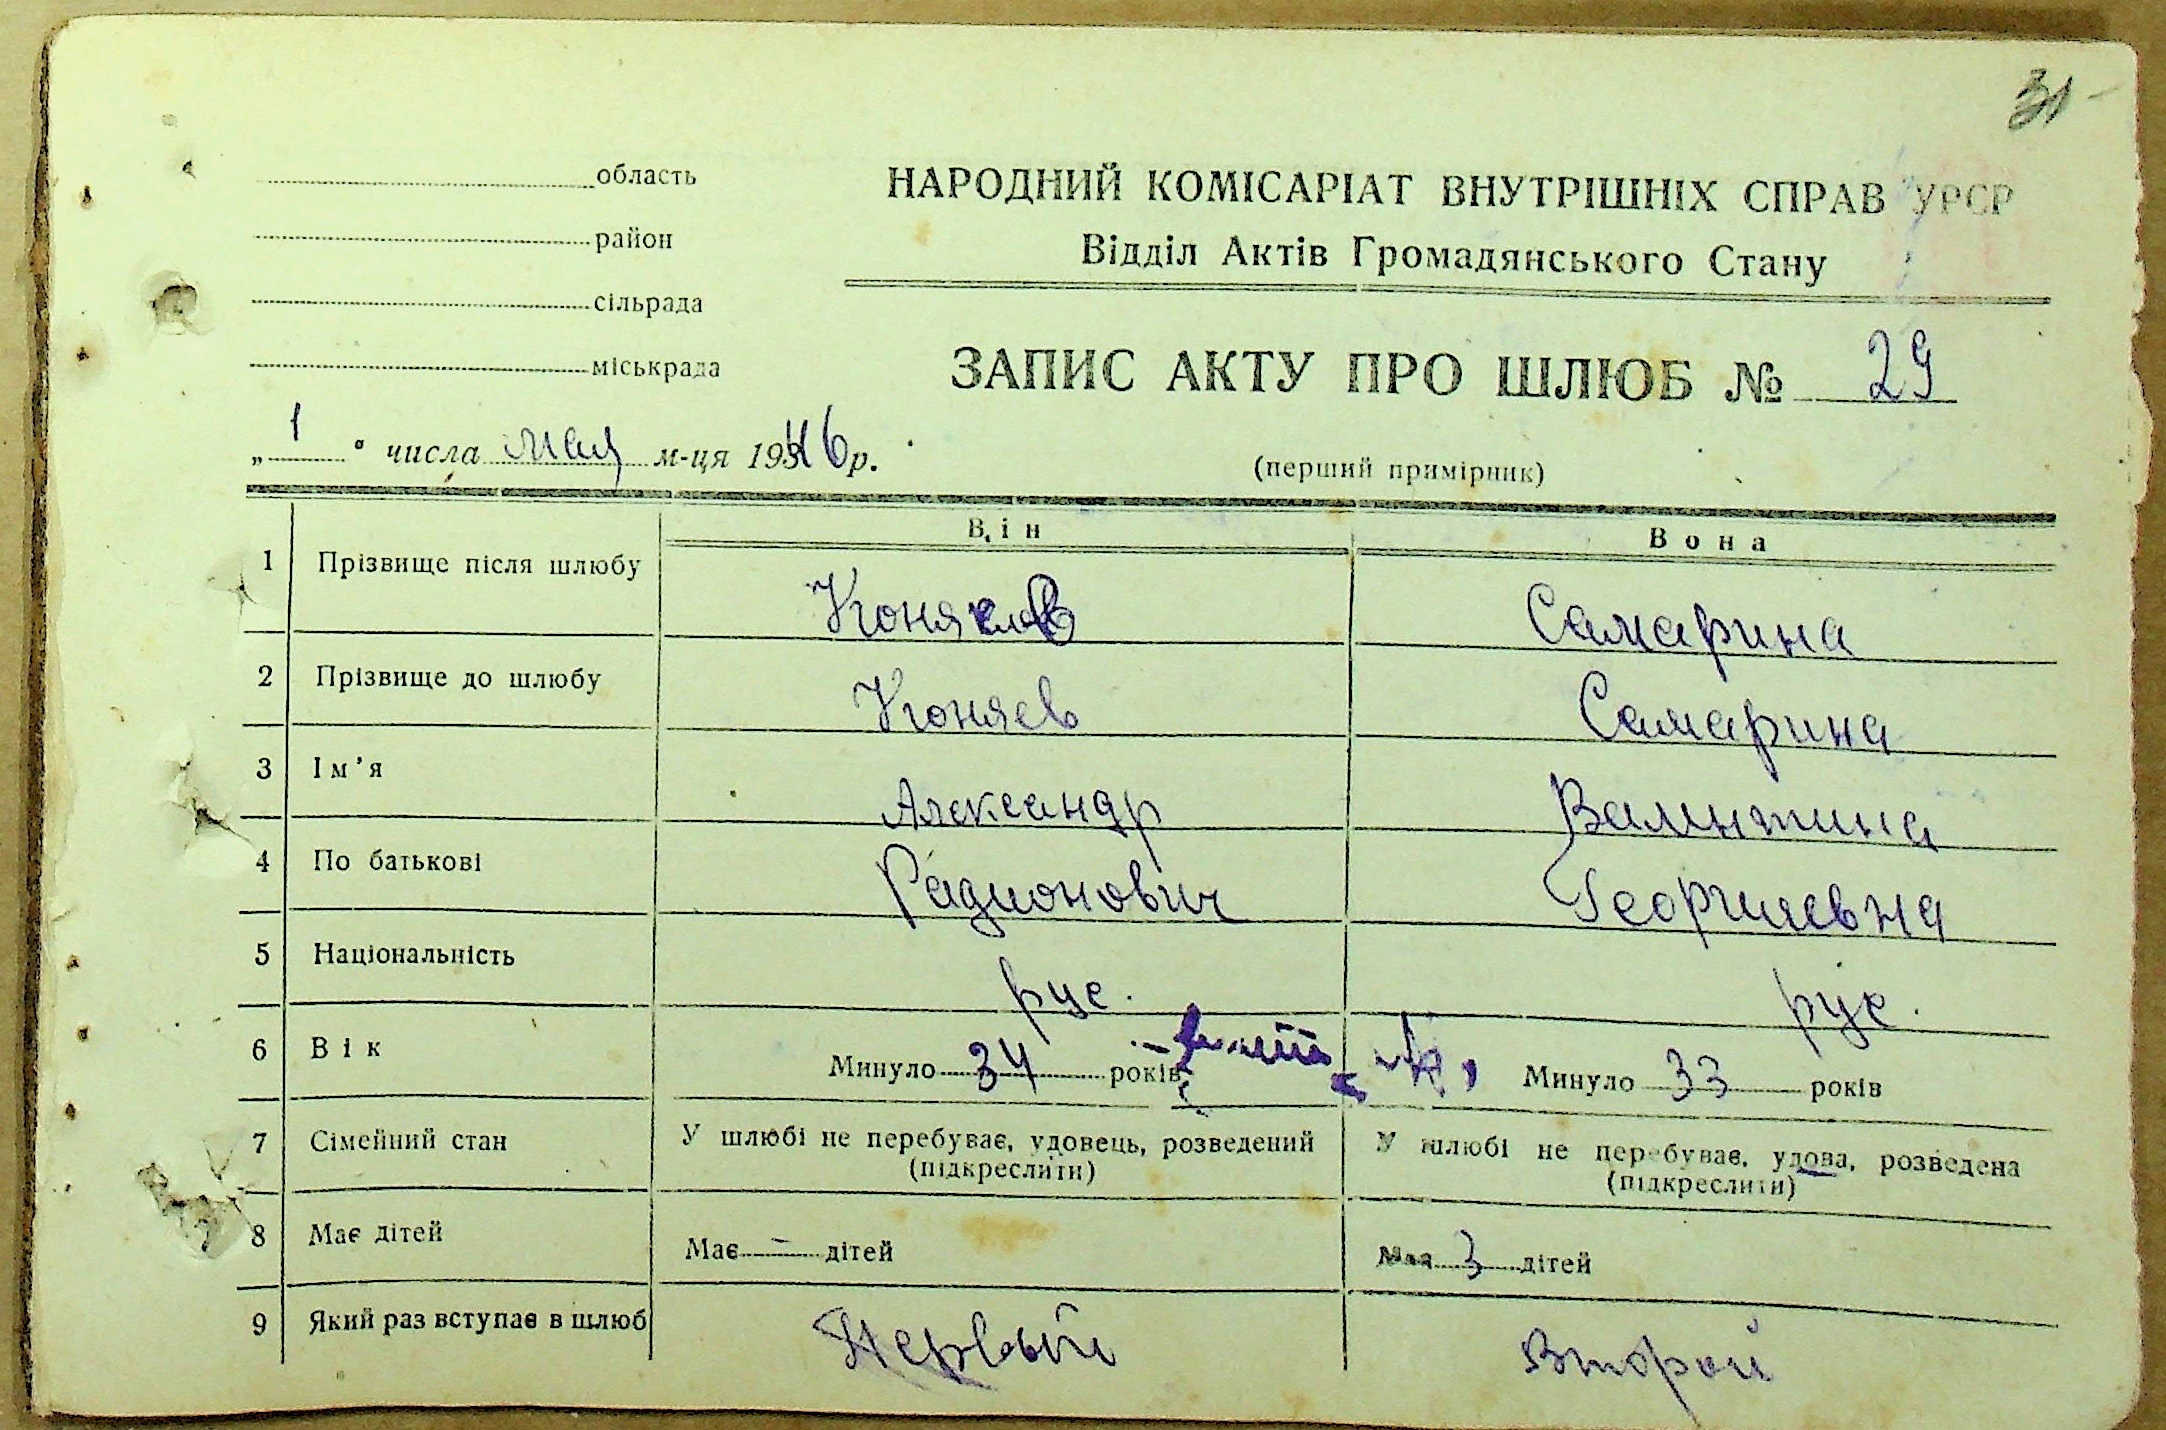 31
область
район
сільрада
міськрада
НАРОДНИЙ КОМІСАРІАТ ВНУТРІШНІХ СПРАВ УРСР
Відділ Актів Громадянського Стану
ЗАПИС АКТУ ПРО ШЛЮБ № 29
„ 1 " числа мая м-ця 1946 р.
(перший примірник)
Він Вона
1 Прізвище після шлюбу Коняев Самарина
2 Прізвище до шлюбу Коняев Самарина
3 Ім'я Александр Валентина
4 По батькові Радионович Георгиевна
5 Національність рус. рус.
6 Вік Минуло 34 років Минуло 33 років
7 Сімейний стан У шлюбі не перебуває, удовець, розведений У шлюбі не перебуває, удова, розведена
(підкреслити) (підкреслити)
8 Має дітей Має - дітей Має 3 дітей
9 Який раз вступає в шлюб Первый Второй